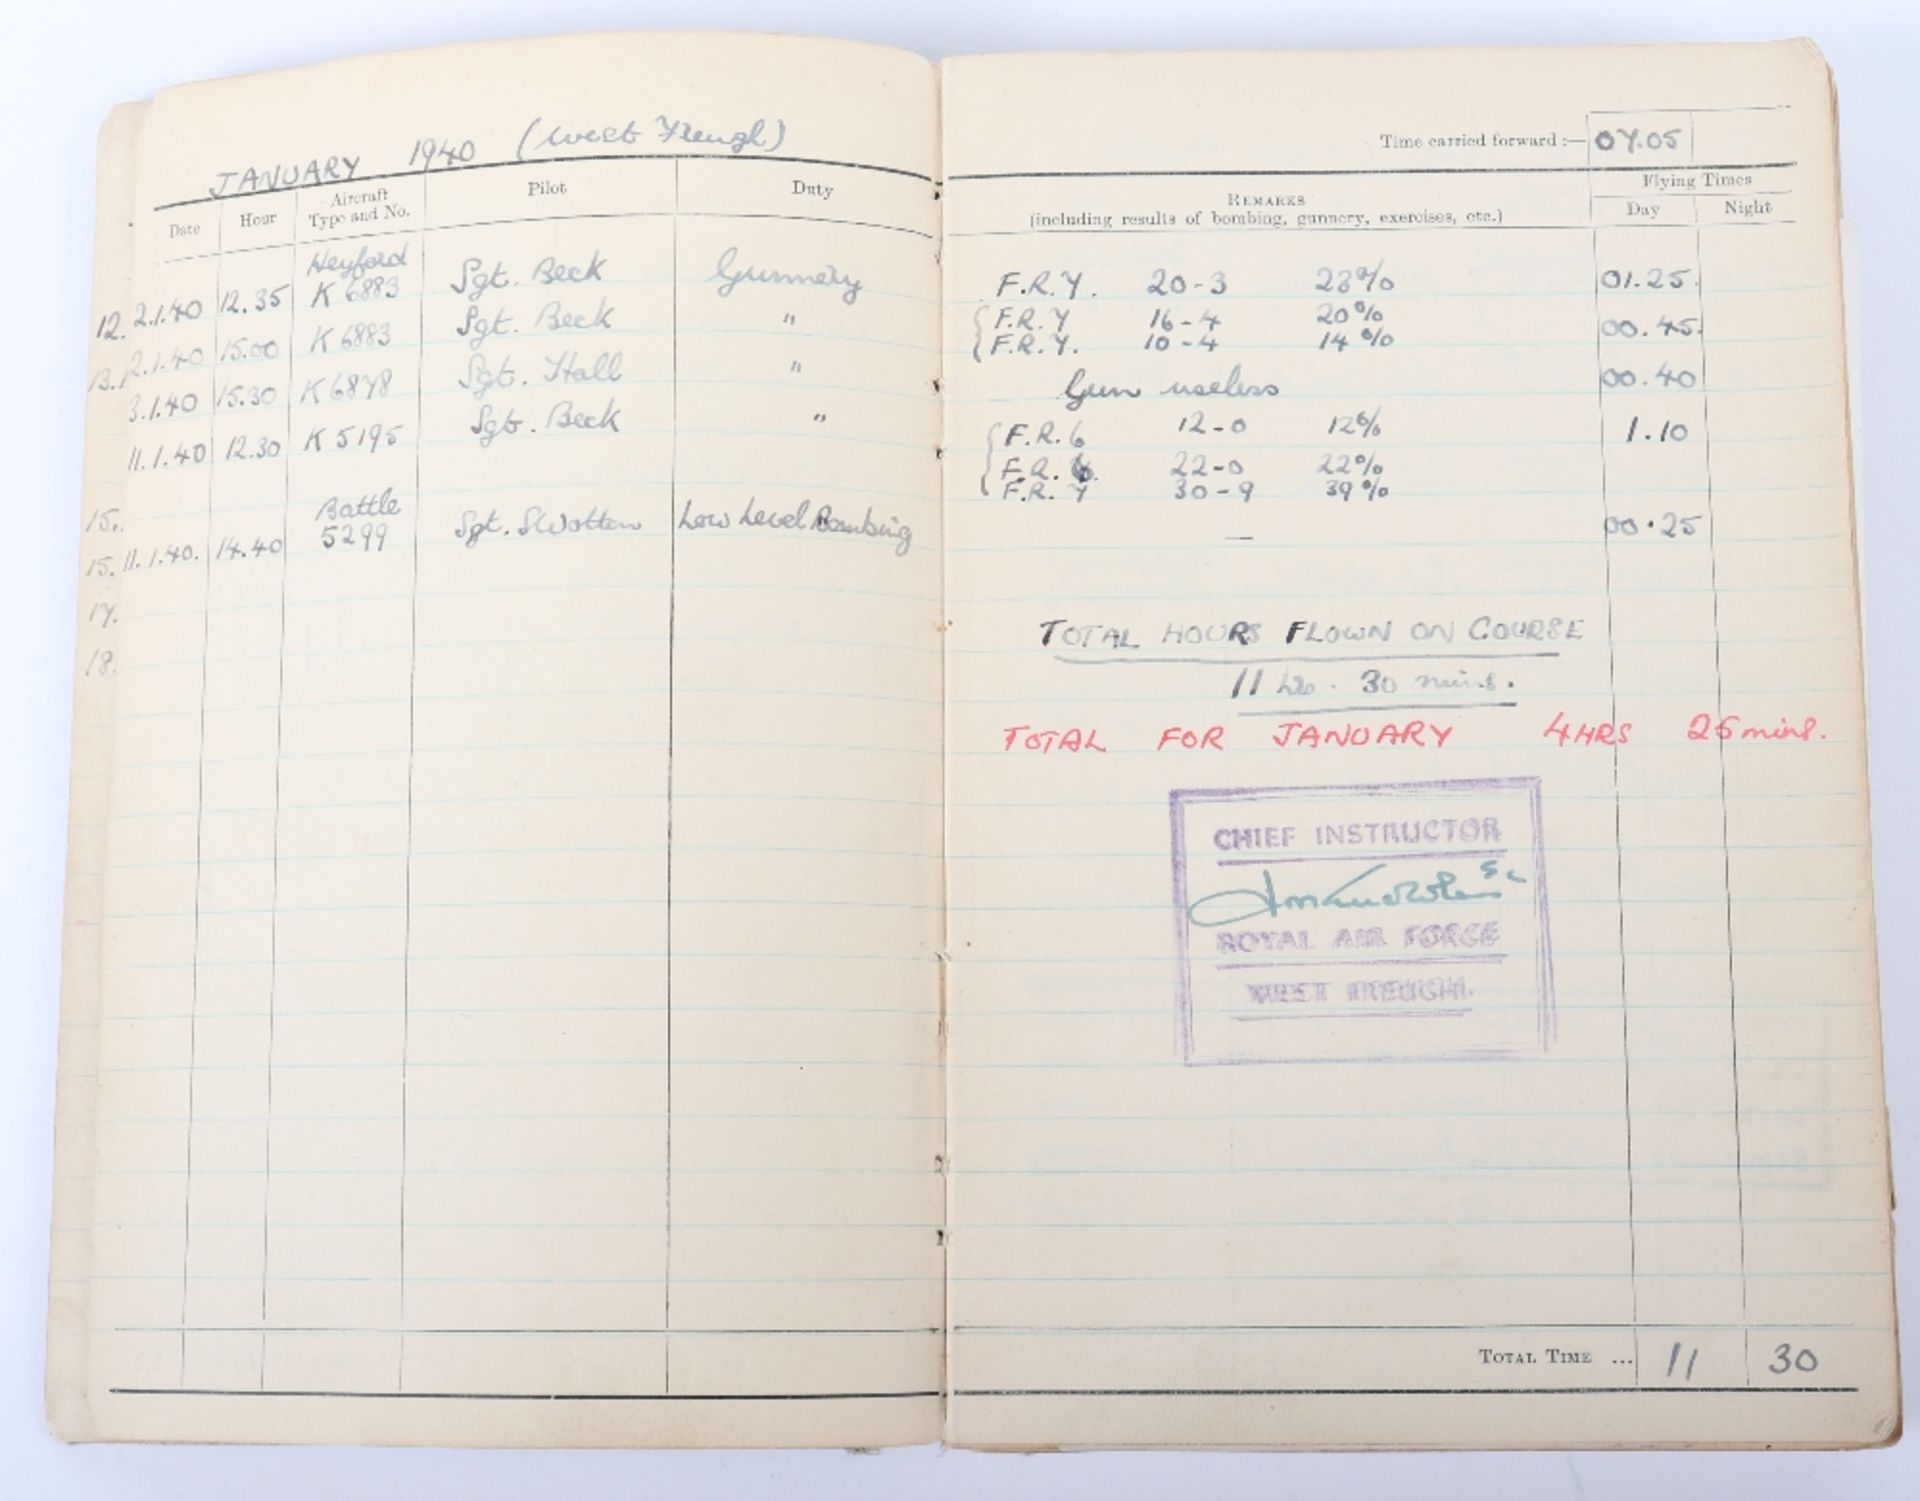 JANUARY 1940 (West Freugh)
Date Hour Aircraft Type and No. Pilot Duty
12. 2.1.40 12.35 Heyford K 6883 Sgt. Beck Gunnery
13. 2.1.40 15.00 K 6883 Sgt. Beck "
3.1.40 15.30 K 6878 Sgt. Hall "
11.1.40 12.30 K 5195 Sgt. Beck "
15.
15. 11.1.40. 14.40 Battle 5299 Sgt. Swotten Low Level Bombing
17.
18.
Time carried forward :— 07.05
REMARKS
(including results of bombing, gunnery, exercises, etc.)
Flying Times
Day Night
F.R.7. 20-3 23% 01.25.
F.R.7 16-4 20% 00.45.
F.R.7. 10-4 14%
Gun useless 00.40
F.R.6 12-0 12% 1.10
F.R. 6. 22-0 22%
F.R. 7 30-9 39%
— 00.25
TOTAL HOURS FLOWN ON COURSE
11 hrs. 30 mins.
TOTAL FOR JANUARY 4HRS 25mins.
CHIEF INSTRUCTOR
ROYAL AIR FORCE
WEST FREUGH.
TOTAL TIME ... 11 30